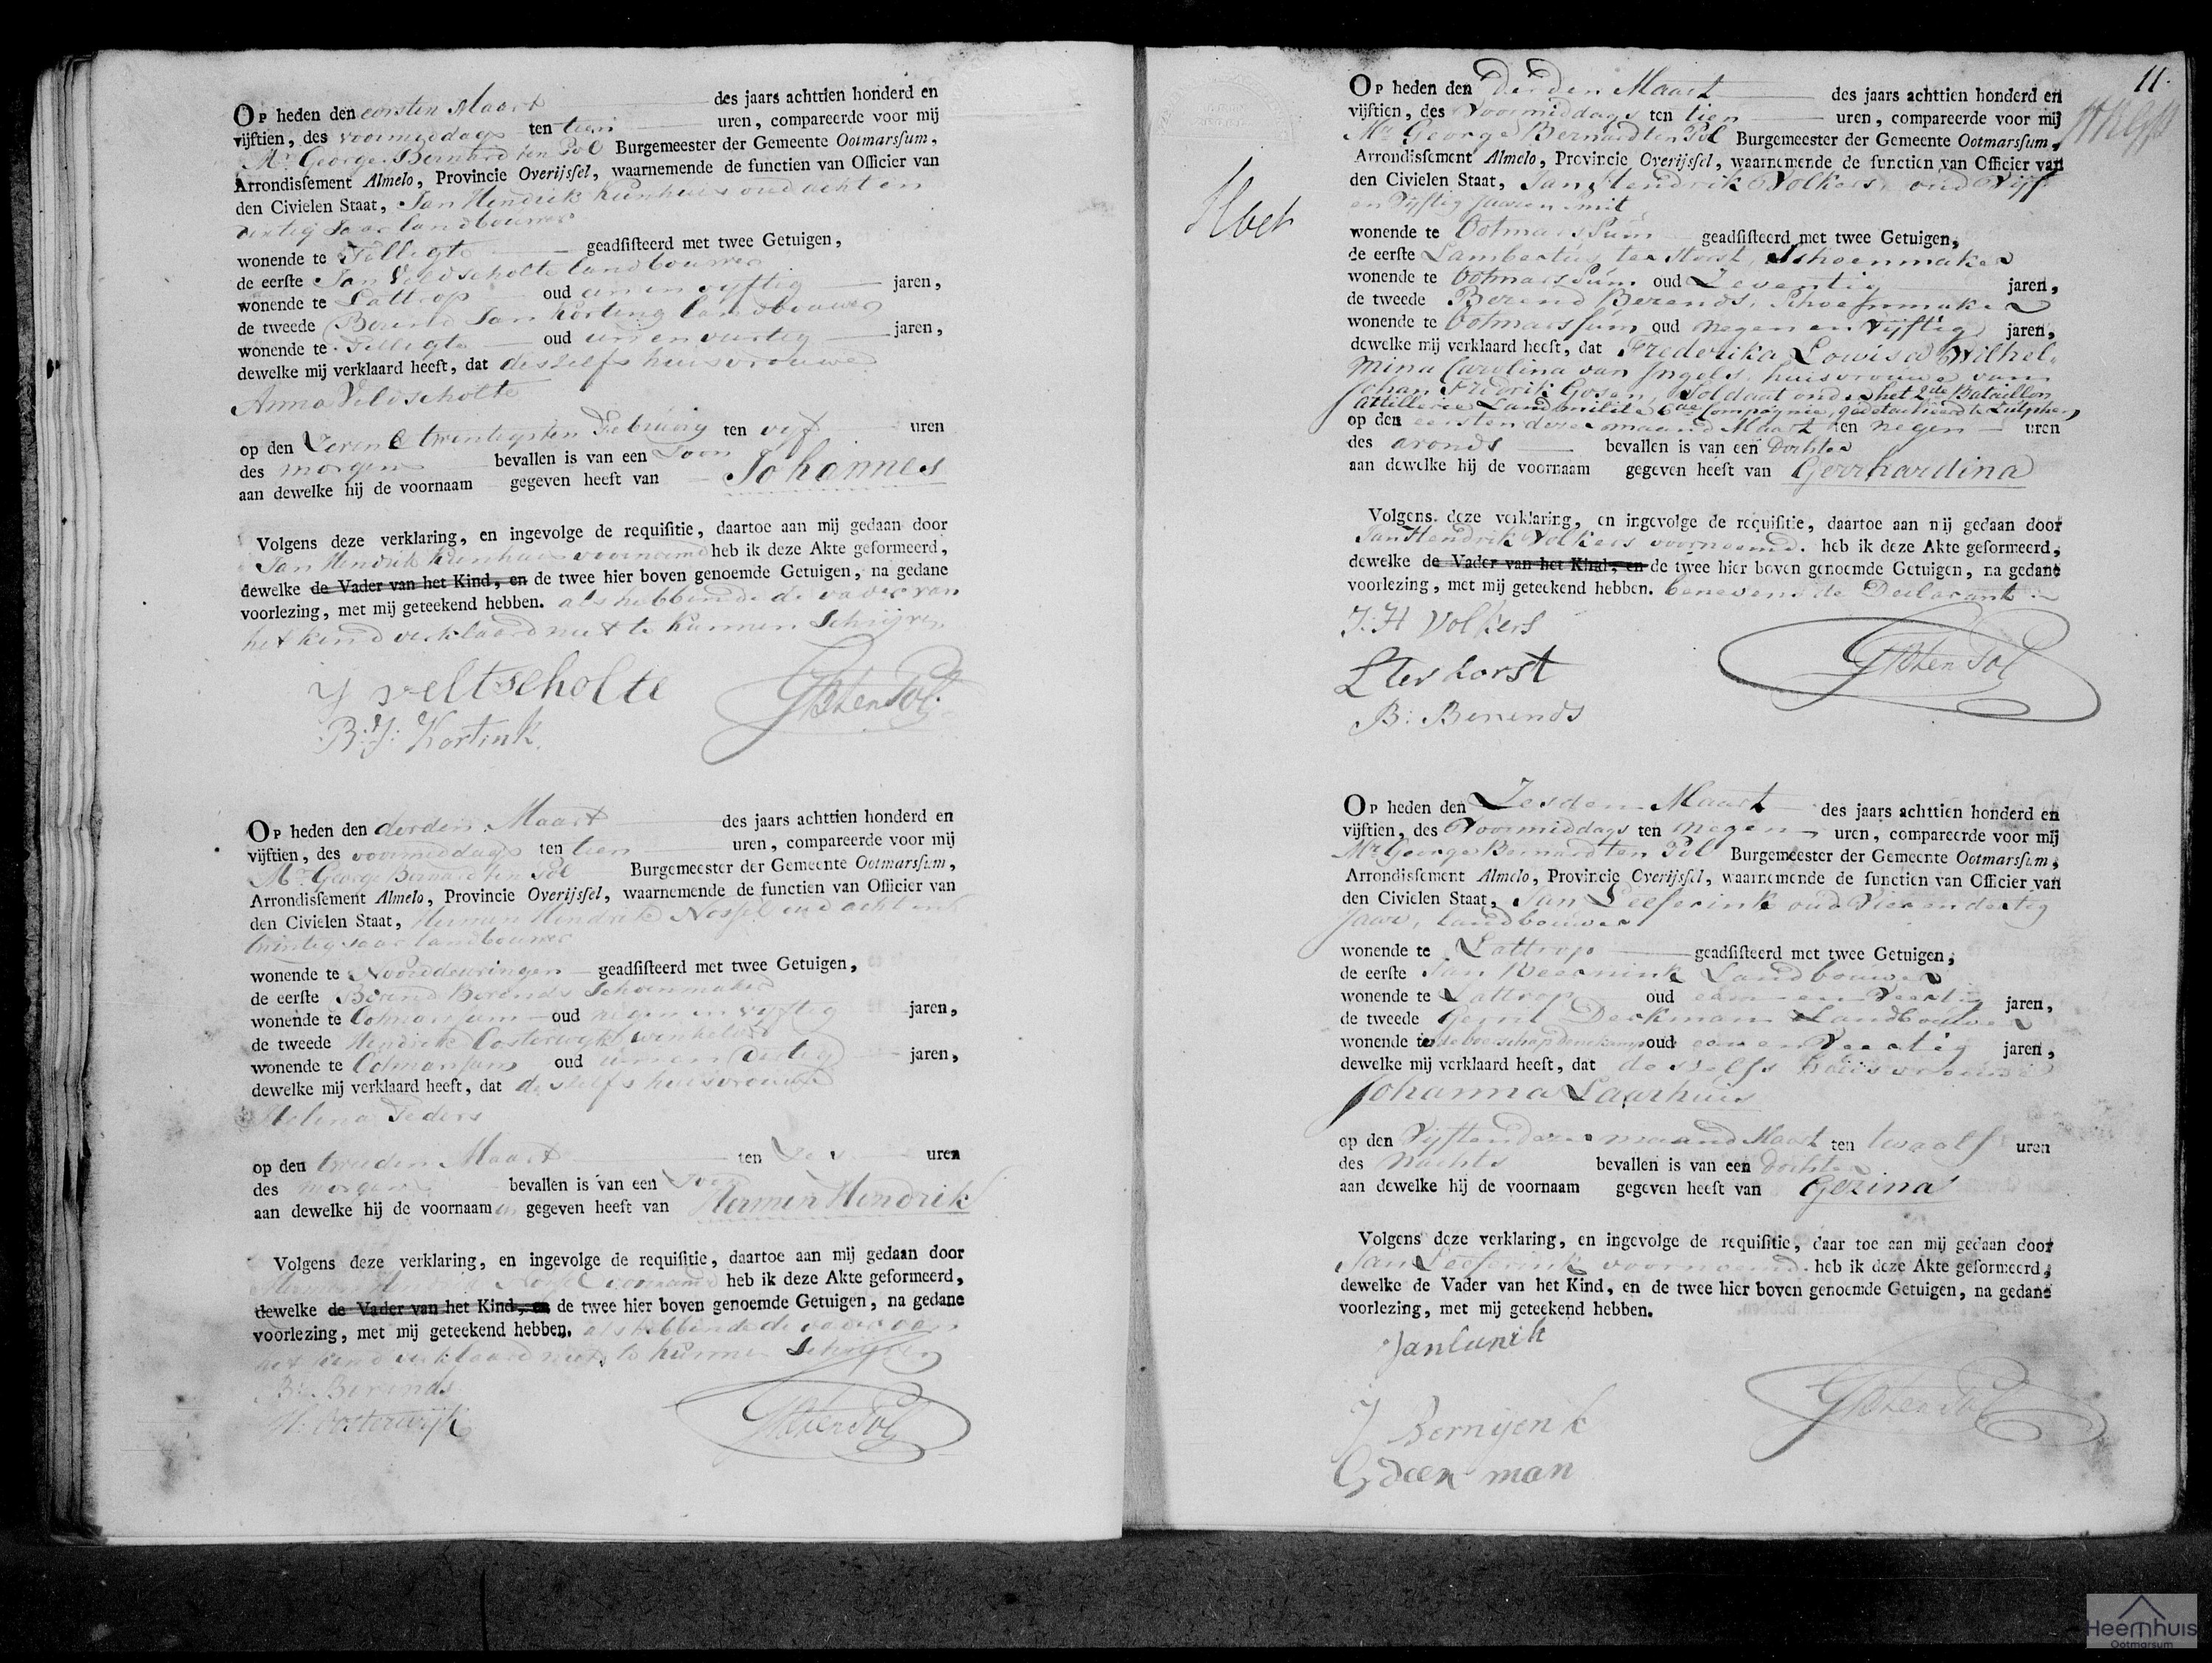 Op heden den eersten Maart des jaars achttien honderd en
vijftien, des voormiddags ten tien uren, compareerde voor mij
Mr. George Bernard ten Pol Burgemeester der Gemeente Ootmarssum,
Arrondissement Almelo, Provincie Overijssel, waarnemende de functien van Officier van
den Civielen Staat, Jan Hendrik oud acht en
dertig Jaar landbouwer
wonende te Tilligte geadsisteerd met twee Getuigen,
de eerste Jan Veldscholte landbouwer
wonende te Lattrop oud een en vyftig jaren,
de tweede Berend Jan Korting landbouwer
wonende te Tilligte oud een en veertig jaren,
dewelke mij verklaard heeft, dat deszelfs huisvrouwe
Anna Veldscholte
op den Zeven & twintigsten February ten vyf uren
des morgens bevallen is van een Zoon
aan dewelke hij de voornaam gegeven heeft van Johannes
Volgens deze verklaring, en ingevolge de requisitie, daartoe aan mij gedaan door
Jan Hendrik voornoemd heb ik deze Akte geformeerd,
dewelke de Vader van het Kind, en de twee hier boven genoemde Getuigen, na gedane
voorlezing, met mij geteekend hebben. als hebbende de vader van
het kind verklaard niet te kunnen Schryven
J veltscholte
B: J: Kortink
GB ten Pol
Op heden den derden Maart des jaars achttien honderd en
vijftien, des voormiddags ten tien uren, compareerde voor mij
Mr. George Bernard ten Pol Burgemeester der Gemeente Ootmarssum,
Arrondissement Almelo, Provincie Overijssel, waarnemende de functien van Officier van
den Civielen Staat, Hermen Hendrik oud acht en
twintig Jaar landbouwer
wonende te Noorddeuringen geadsisteerd met twee Getuigen,
de eerste Berend Berends Schoenmaker
wonende te Ootmarssum oud negen en vyftig jaren,
de tweede Hendrik Oosterwyk winkelier
wonende te Ootmarssum oud een en dertig jaren,
dewelke mij verklaard heeft, dat deszelfs huisvrouwe
Helena
op den tweeden Maart ten uren
des morgens bevallen is van een Zoon
aan dewelke hij de voornaamen gegeven heeft van Hermen Hendrik
Volgens deze verklaring, en ingevolge de requisitie, daartoe aan mij gedaan door
voornoemd heb ik deze Akte geformeerd,
dewelke de Vader van het Kind, en de twee hier boven genoemde Getuigen, na gedane
voorlezing, met mij geteekend hebben. als hebbende de vader van
het kind verklaard niet te kunnen Schryven
B: Berends
H: Oosterwijk
GB ten Pol
11.
Op heden den Derden Maart des jaars achttien honderd en
vijftien, des Voormiddags ten tien uren, compareerde voor mij
Mr. George Bernard ten Pol Burgemeester der Gemeente Ootmarssum,
Arrondissement Almelo, Provincie Overijssel, waarnemende de functien van Officier van
den Civielen Staat, Jan Hendrik Volkers, oud Vijf
en Vijftig Jaaren smit
wonende te Ootmarssum geadsisteerd met twee Getuigen,
de eerste Lambertus ter Horst, Schoenmaker
wonende te Ootmarssum oud Zeventig jaren,
de tweede Berend Berends, Schoenmaker
wonende te Ootmarssum oud negen en Vijftig jaren,
dewelke mij verklaard heeft, dat Frederika Lowisa Wilhel-
mina Carolina van Ingels, huisvrouwe van
Johan Fridrik Gosen, Soldaat onder het 2de Bataillon
Attillerie Landmilitie 6de Compagnie, gedetacheerd te Zutphen
op den eersten dezer maand Maart ten negen uren
des avonds bevallen is van een Dochter
aan dewelke hij de voornaam gegeven heeft van Gerrhardina
Volgens deze verklaring, en ingevolge de requisitie, daartoe aan mij gedaan door
Jan Hendrik Volkers voornoemd. heb ik deze Akte geformeerd,
dewelke de Vader van het Kind, en de twee hier boven genoemde Getuigen, na gedane
voorlezing, met mij geteekend hebben. benevens de Declarant
J: H Volkers
L ter horst
B: Berends
GB ten Pol
Op heden den Zesden Maart des jaars achttien honderd en
vijftien, des Voormiddags ten negen uren, compareerde voor mij
Mr. George Bernard ten Pol Burgemeester der Gemeente Ootmarssum,
Arrondissement Almelo, Provincie Overijssel, waarnemende de functien van Officier van
den Civielen Staat, Jan Leeferink oud Vier en dertig
Jaar, landbouwer
wonende te Lattrop geadsisteerd met twee Getuigen,
de eerste Jan Landbouwer
wonende te Lattrop oud een en Veertig jaren,
de tweede Gerrit Deckman Landbouwer
wonende te de boerschap Denekamp oud een en Veertig jaren,
dewelke mij verklaard heeft, dat deszelfs huisvrouwe
Johanna Laarhuis
op den Vijften dezer maand Maart ten twaalf uren
des Nachts bevallen is van een Dochter
aan dewelke hij de voornaam gegeven heeft van Gezina
Volgens deze verklaring, en ingevolge de requisitie, daar toe aan mij gedaan door
Jan Leeferink voornoemd. heb ik deze Akte geformeerd,
dewelke de Vader van het Kind, en de twee hier boven genoemde Getuigen, na gedane
voorlezing, met mij geteekend hebben.
J Bernijenk
G deen man
GB ten Pol
Heemhuis
Ootmarsum